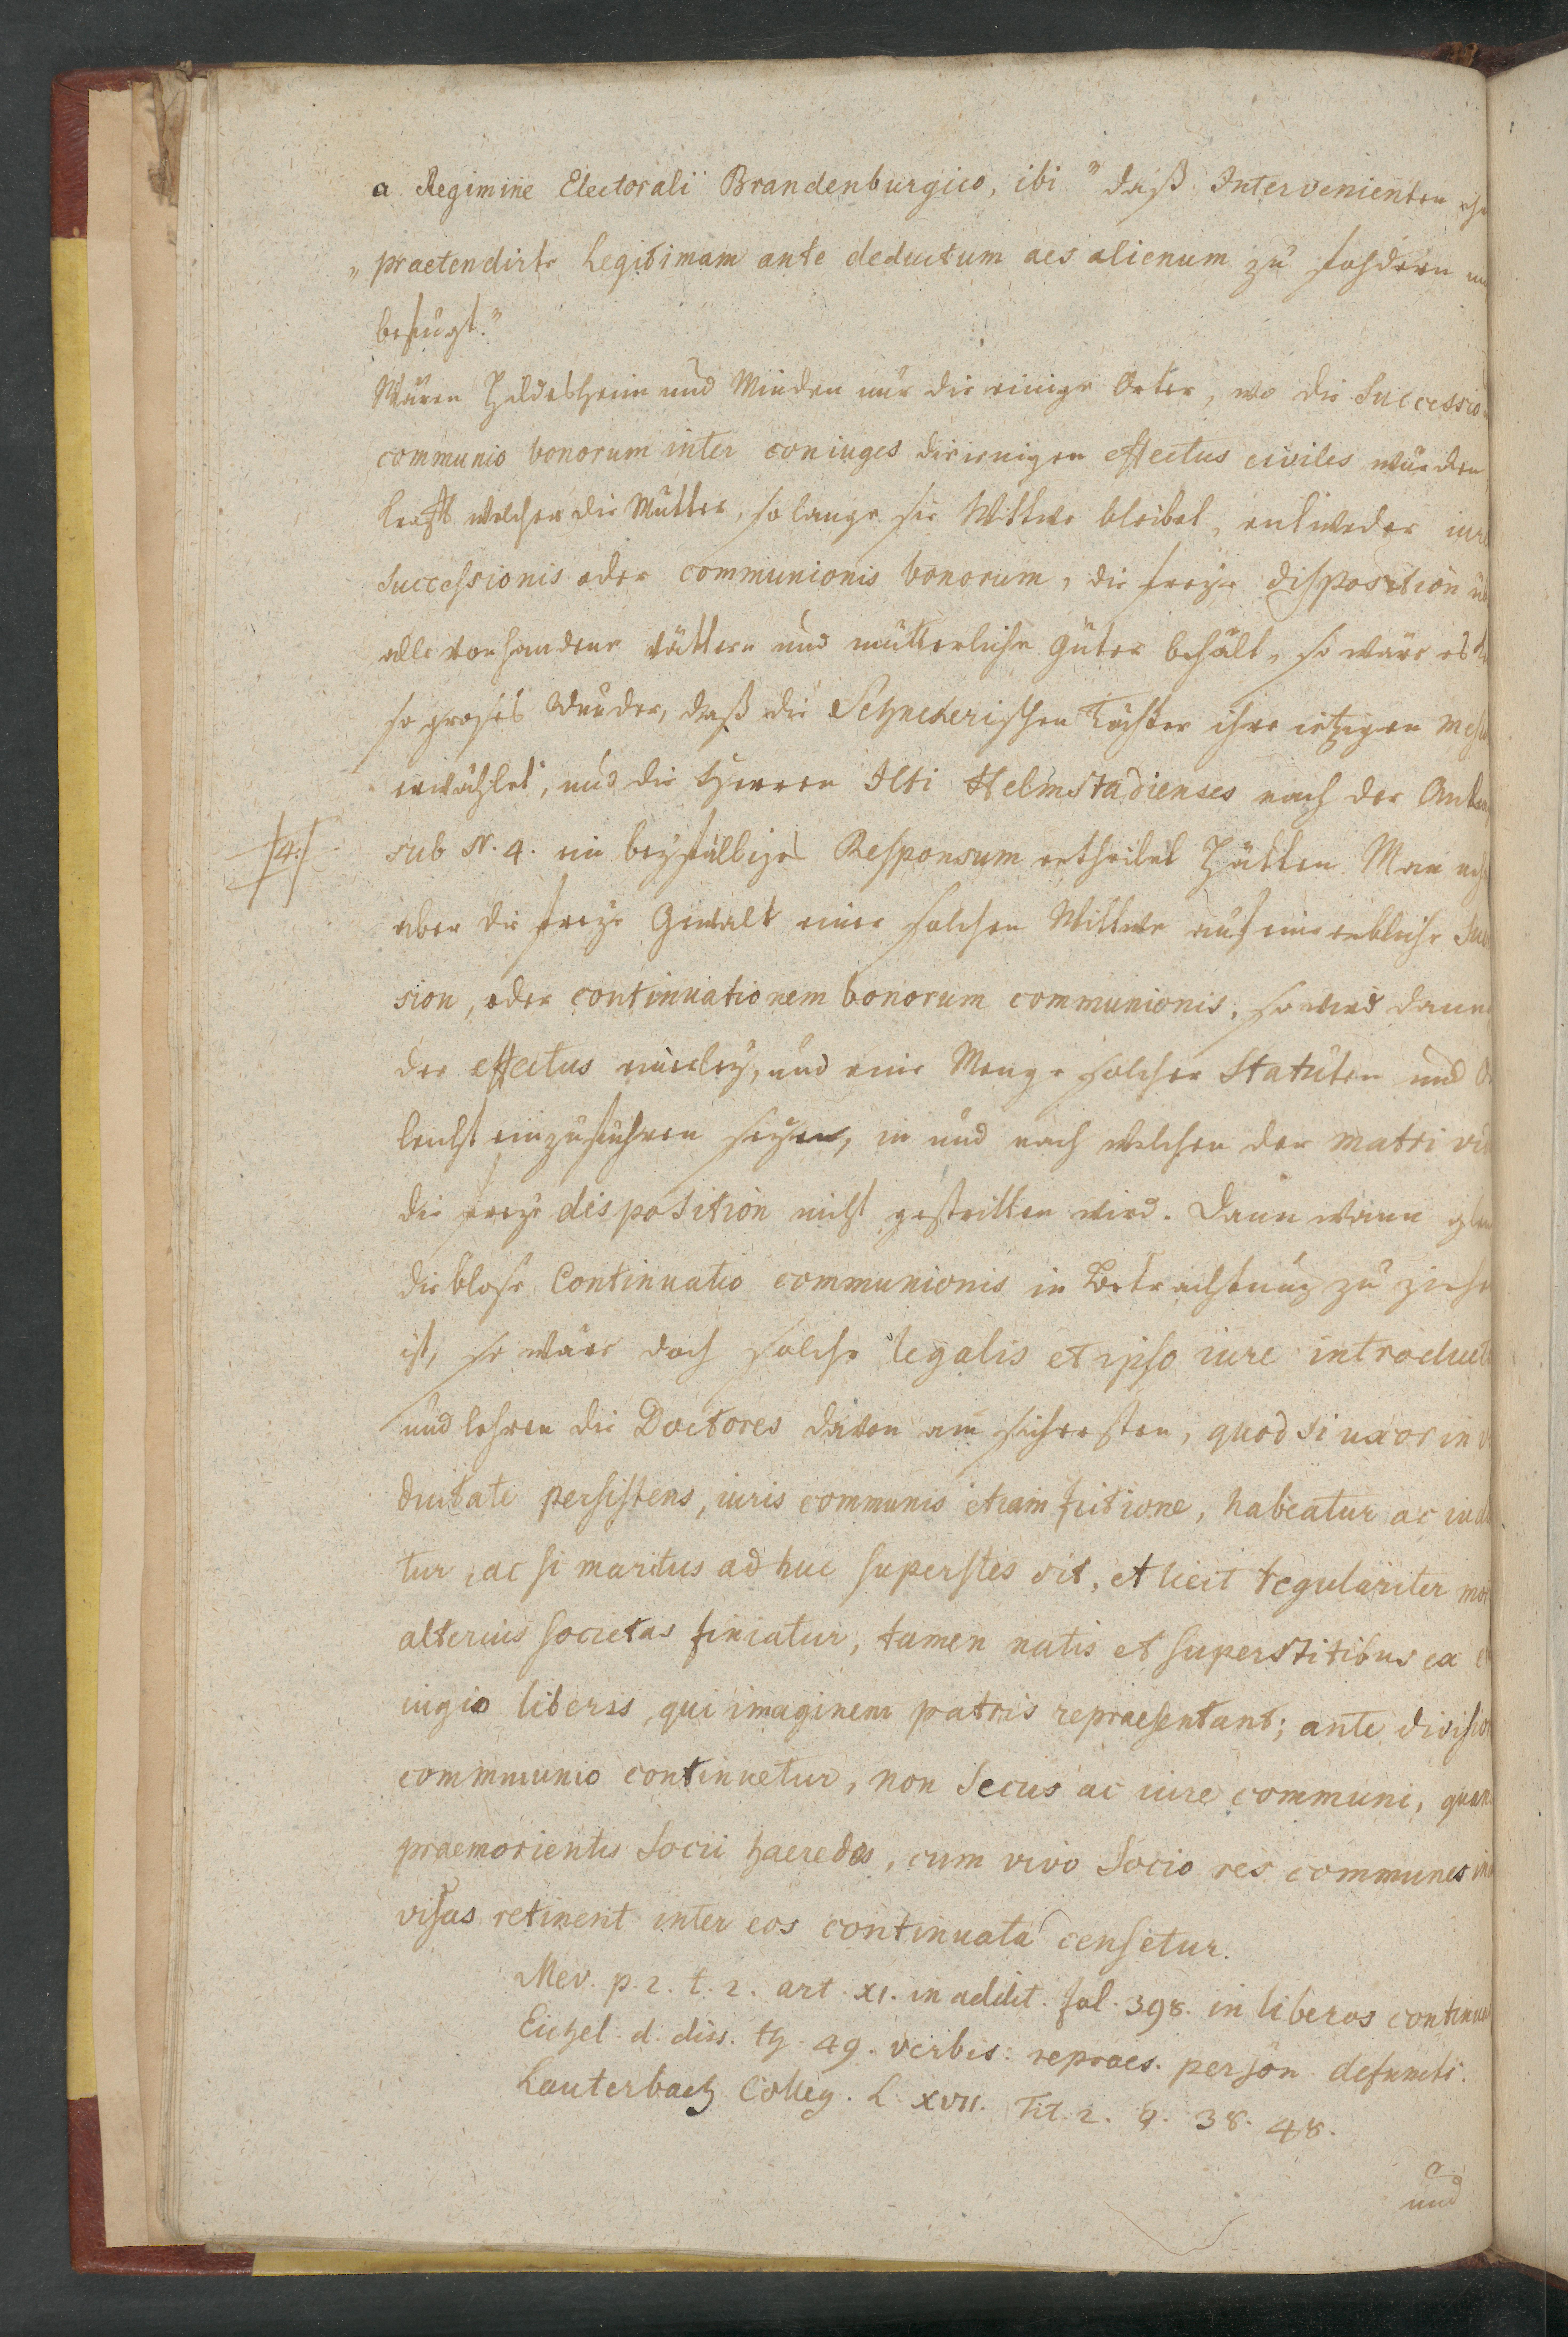 a Regimine Electorali Brandenburgico, ibi "daß Intervenienten ihr
"praetendirte Legitimam ante deductum aes alienum zu fordern un
befugt."
Wären Hildesheim und Minden nur die einige Örter, wo die Successio
communio bonorum inter coniuges diejenigen effectus civiles würden,
krafft welcher die Mutter, so lange sie Wittwe bleibet, entweder iure
successionis oder communionis bonorum, die freye disposition üb
alle vorhandene vätter- und mütterliche Güter behält, so wäre es
so groses Wunder, daß die Schnekerischen Töchter ihre ietzigen
erwählet, und die Herren Icti Helmstadienses nach der
sub N. 4. ein beyfälliges Responsum ertheilet hätten. Man
4.
aber die freye Gewalt einer solchen Wittwe auf eine erbliche Suc
sion, oder continuationem bonorum communionis, so wird dann
der effectus einerley, und eine Menge solcher Statuten und
leicht einzuführen seyen, in und nach welchen der matri vid
die freye disposition nicht gestritten wird. Dann wann
die blose Continuatio communionis in Betrachtung zu ziehe
ist, so wäre doch solche legalis et ipso iure introducta
und lehren die Doctores davon am sichersten, quod si uxor in v
duitate persistens, iuris communis etiam fictione, habeatur ac iudi
tur, ac si maritus ad huc superstes sit, et licit regulariter mor
alterius societas finiatur, tamen natis et superstitibus ex
iugio liberis, qui imaginem patris repraesentant; ante divisio
commmunio continuetur, non secus ac iure communi, quan
praemorientis Socii haeredes, cum vivo Socio res communes in
visas retinent inter eos continuata censetur.
Mev. p. 2. t. 2. art. XI. in addit. fol. 398. in liberos continua
Eichel. d. diss. th. 49. verbis: repraes. person defuncti.
Lauterbach Colleg. L. XVII. Tit. 2. §. 38. 48.
und